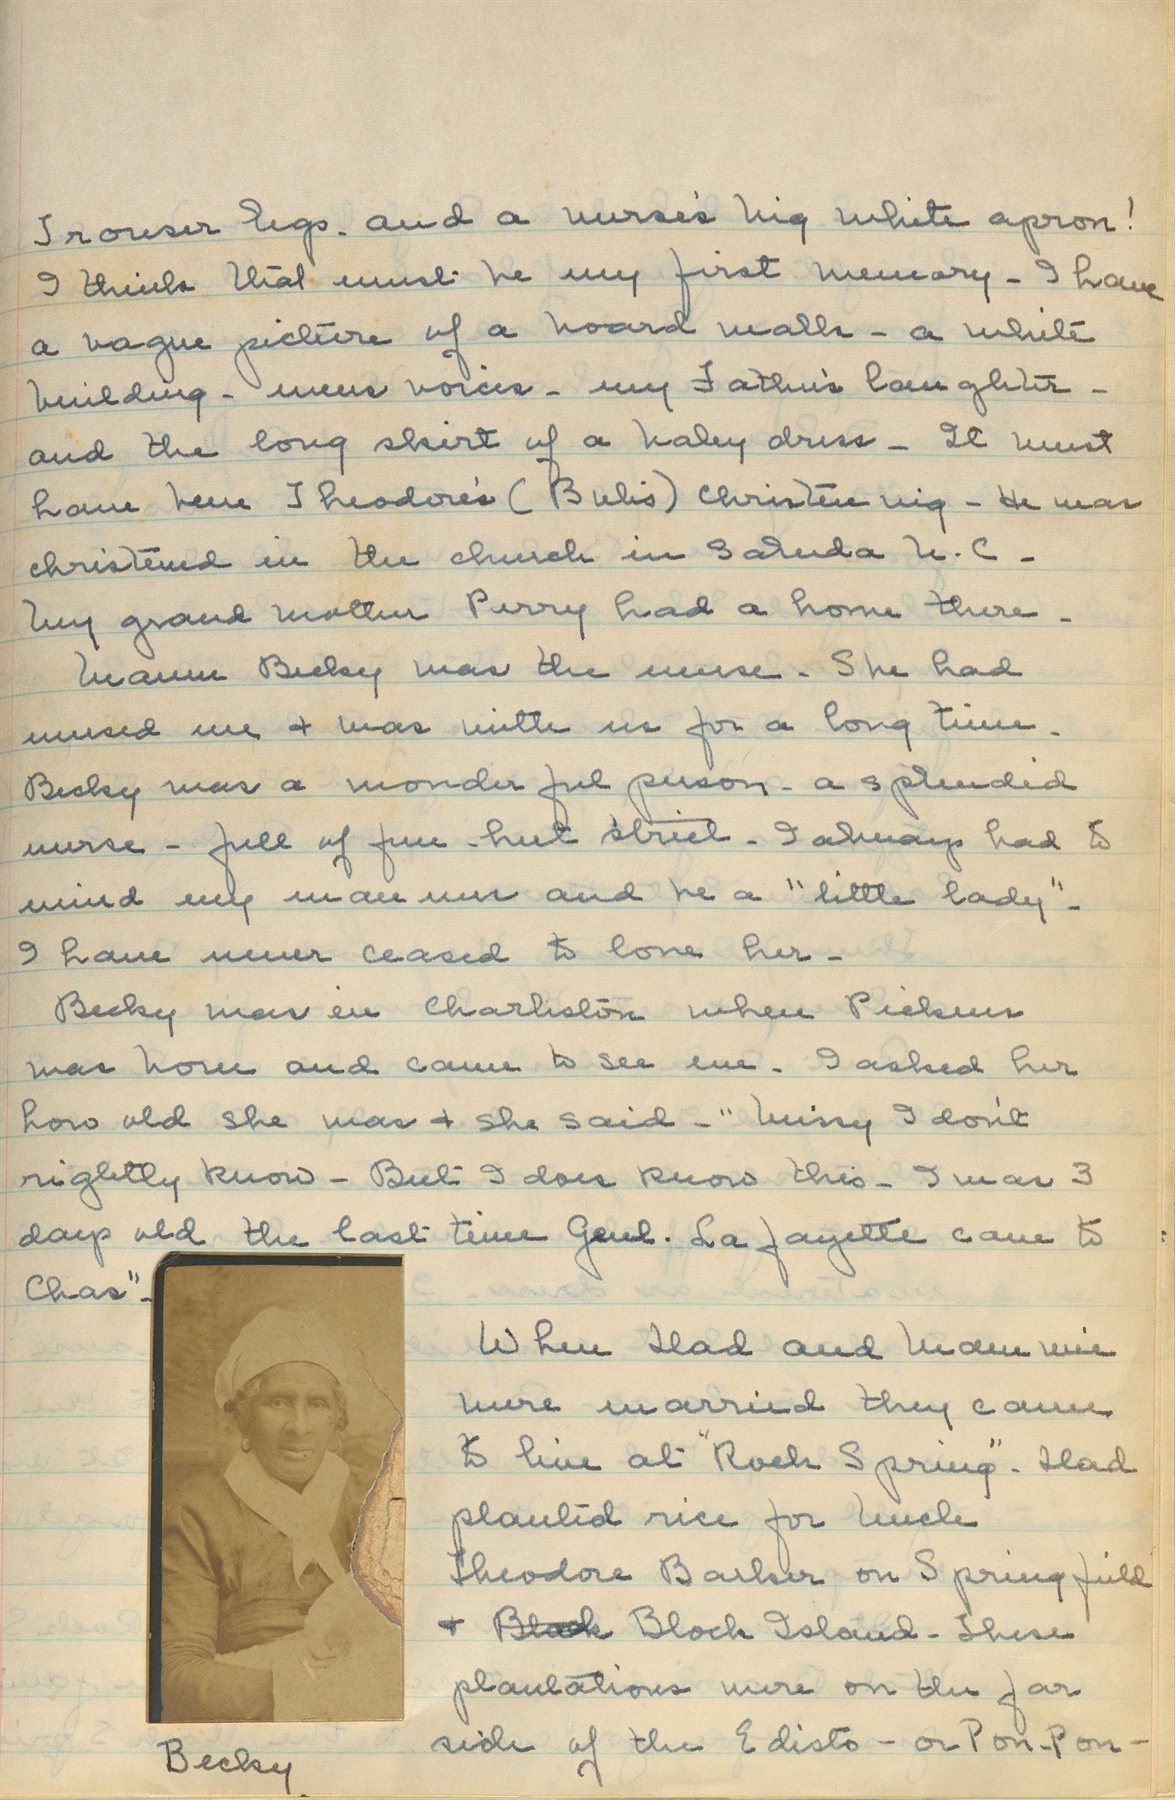 Trouser legs. and a nurse's big white apron!
I think that must be my first memory - I have
a vague picture of a board walk - a white
building - mens voices - my Father's laughter -
and the long skirt of a baby dress - It must
have been Theodore's ( Bubis) Christening - He was
christened in the church in Saluda N.C -
My grand mother Perry had a home there -
Maum Becky was the nurse. She had
nursed me + was with us for a long time.
Becky was a wonderful person - a splendid
nurse - full of fun - but strict - I always had to
mind my manners and be a "little lady" -
I have never ceased to love her -
Becky was in Charleston when Pickens
was born and came to see me. I asked her
how old she was + she said - "Missy I don't
rightly know - But I does know this - I was 3
days old the last time Genl. La fayette came to
Chas" -
When Dad and Mammie
were married they came
to live at "Rock Spring". Dad
planted rice for Uncle
Theodore Barker on Springfield
+ Block Block Island - These
plantations were on the far
side of the Edisto - or Pon-Pon -
Becky.